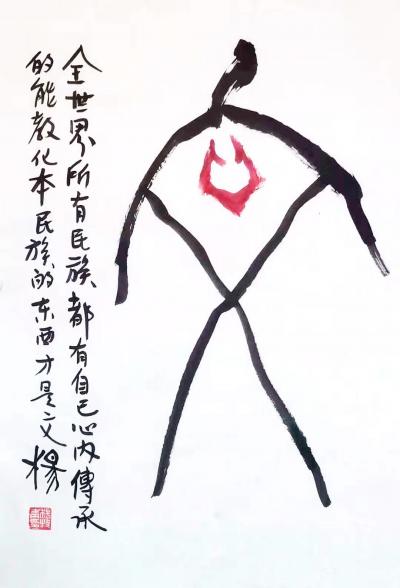 文
全世界所有民族都有自己心内傳承
的能教化本民族的东西才是文 楊